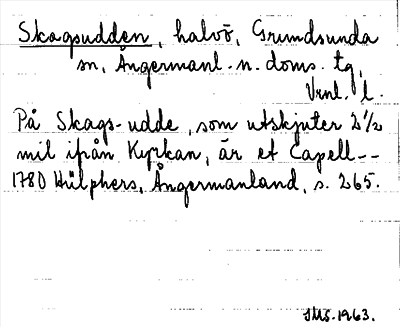 Skagsudden, halvö, Grundsunda
sn, Ångermanl. n. doms. tg,
Vnl. l.
På Skags-udde, som utskjuter 2½
mil ifrån Kyrkan, är et Capell--
1780 Hülphers, Ångermanland, s. 265.
IMS. 1963.